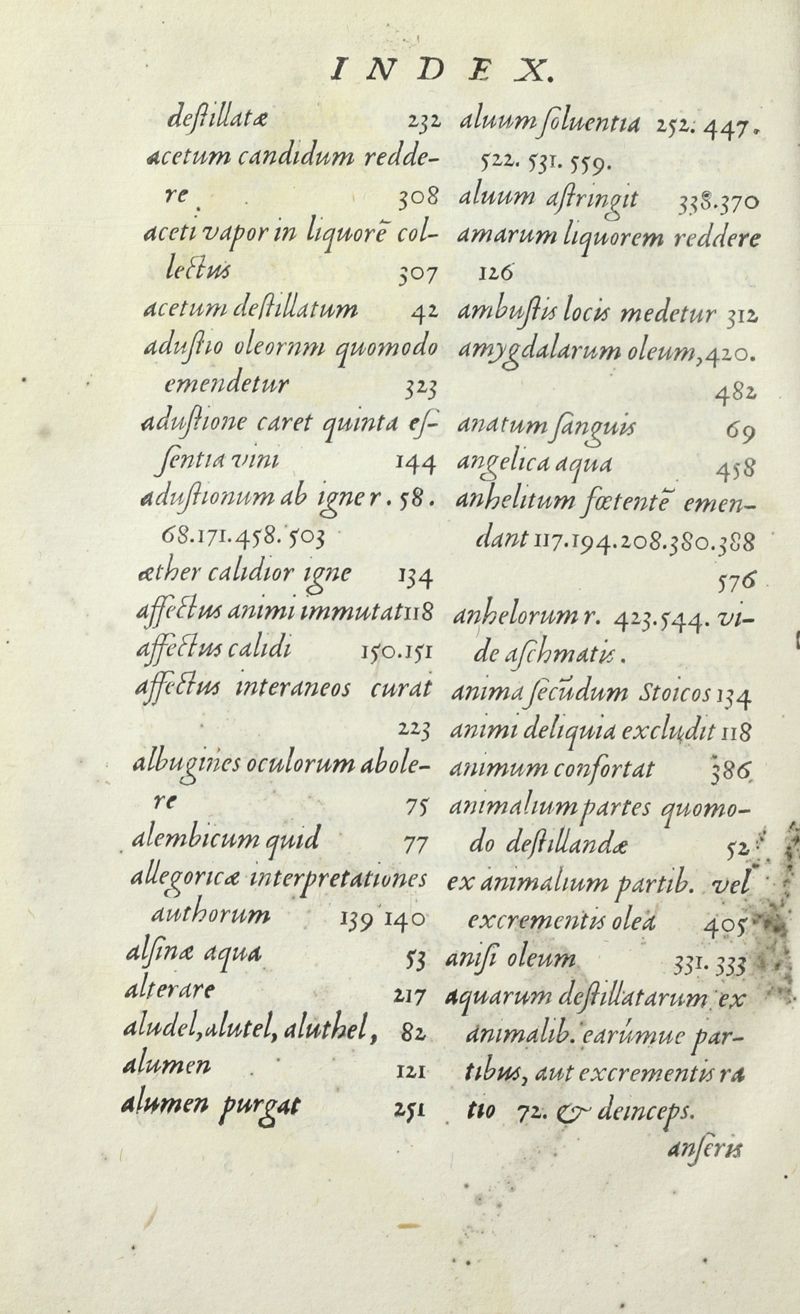 INDEX.
deſtillatæ 232
acetum candidum redde-
re 308
aceti vapor in liquorē col-
lectus 307
acetum deſtillatum 42
aduſtio oleornm quomodo
emendetur 323
aduſtione caret quinta eſ-
ſentia vini 144
aduſtionum ab igne r. 58.
68.171.458.503
æther calidior igne 134
affectus animi immutat 118
affectus calidi 150.151
affectus interaneos curat
223
albugines oculorum abole-
re 75
alembicum quid 77
allegoricæ interpretationes
authorum 139 140
alſinæ aqua 53
alterare 217
aludel, alutel, aluthel, 82
alumen 121
alumen purgat 251
aluum ſoluentia 252. 447.
522. 531. 559.
aluum aſtringit 338.370
amarum liquorem reddere
126
ambuſtis locis medetur 312
amygdalarum oleum, 420.
482
anatum ſanguis 69
angelica aqua 458
anhelitum fœtentē emen-
dant 117.194.208.380.388
576
anhelorum r. 423.544. vi-
de aſchmatis.
anima ſecūdum Stoicos 134
animi deliquia excludit 118
animum confortat 386
animalium partes quomo-
do deſtillandæ 52
ex animalium partib. vel
excrementis olea 405
aniſi oleum 331. 333
aquarum deſtillatarum ex
animalib. earúmue par-
tibus, aut excrementis ra
tio 72. & deinceps.
anſeris